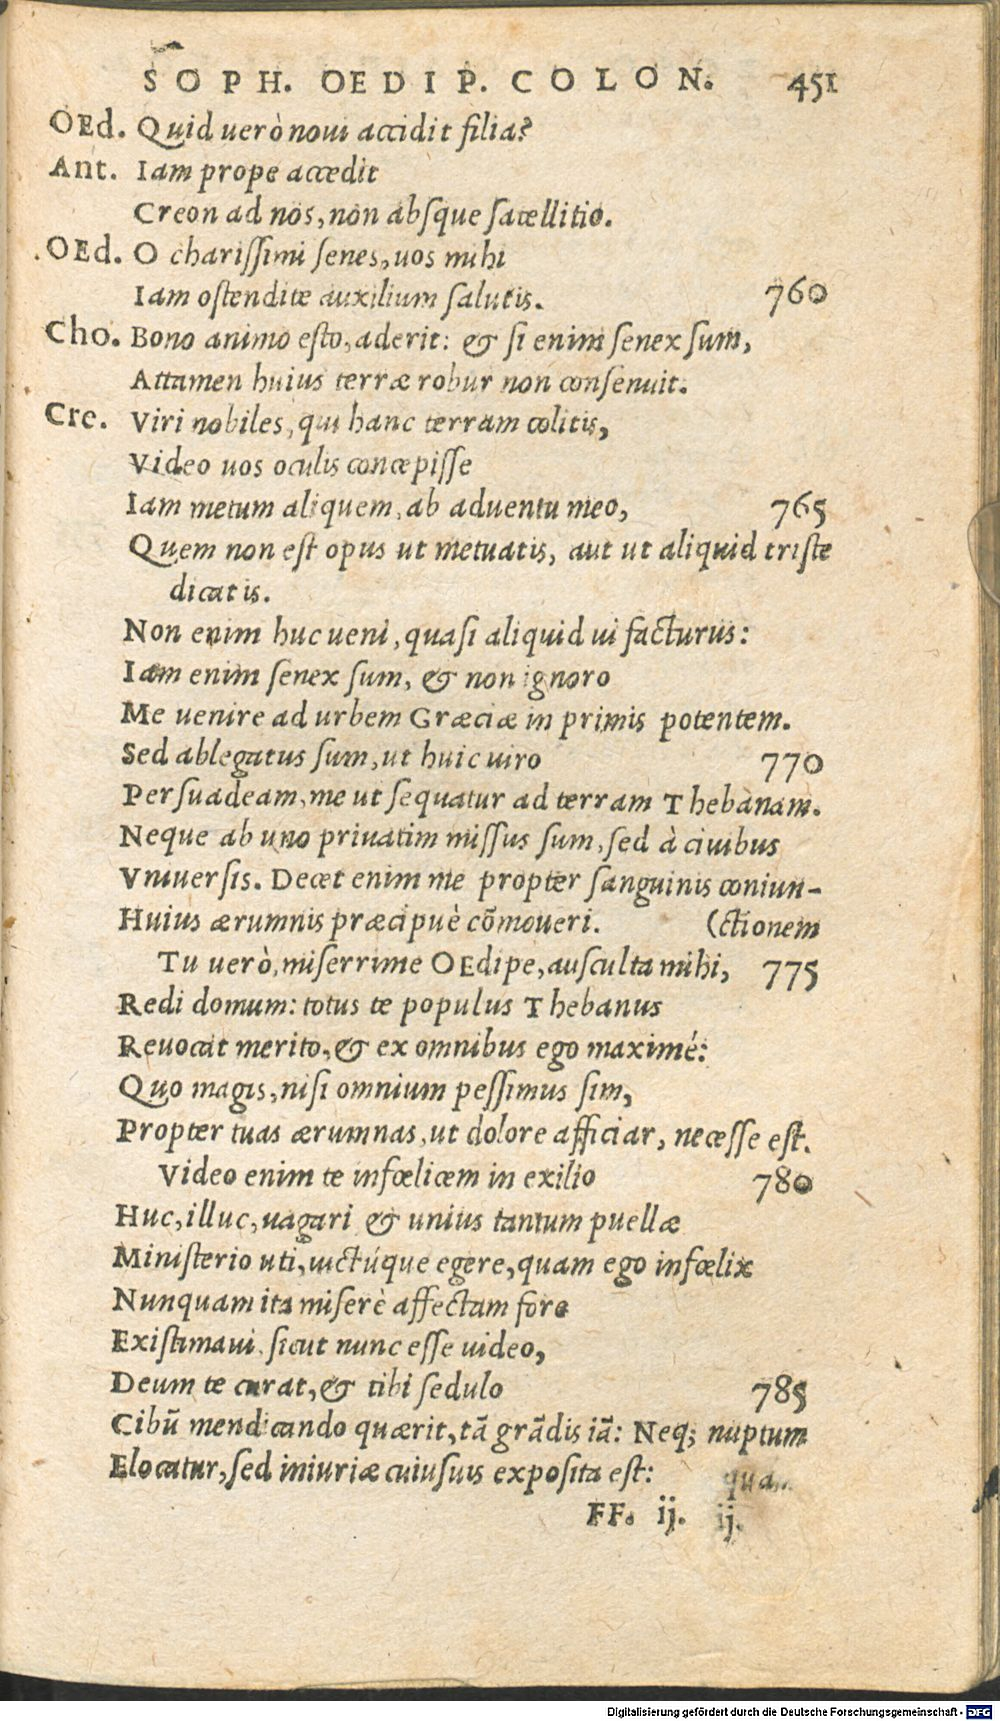 SOPH. OEDIP. COLON. 451
OEd. Quid uerò noui accidit filia?
Ant. Iam prope accedit
Creon ad nos, non absque satellitio.
OEd. O charissimi senes, uos mihi
Iam ostendite auxilium salutis. 760
Cho. Bono animo esto, aderit: & si enim senex sum,
Attamen huius terræ robur non consenuit.
Cre. Viri nobiles, qui hanc terram colitis,
Video uos oculis concepisse
Iam metum aliquem, ab aduentu meo, 765
Quem non est opus ut metuatis, aut ut aliquid triste
dicatis.
Non enim huc ueni, quasi aliquid ui facturus:
Iam enim senex sum, & non ignoro
Me uenire ad urbem Græciæ in primis potentem.
Sed ablegatus sum, ut huic uiro 770
Persuadeam, me ut sequatur ad terram Thebanam.
Neque ab uno priuatim missus sum, sed à ciuibus
Vniuersis. Decet enim me propter sanguinis coniun-
Huius ærumnis præcipuè cōmoueri. (ctionem
Tu uerò, miserrime OEdipe, ausculta mihi, 775
Redi domum: totus te populus Thebanus
Reuocat merito, & ex omnibus ego maximé:
Quo magis, nisi omnium pessimus sim,
Propter tuas ærumnas, ut dolore afficiar, necesse est.
Video enim te infœlicem in exilio 780
Huc, illuc, uagari & unius tantum puellæ
Ministerio uti, uictúque egere, quam ego infœlix
Nunquam ita miserè affectam fore
Existimaui, sicut nunc esse uideo,
Deum te curat, & tibi sedulo 785
Cibū mendicando quærit, tā grādis iā: Neq; nuptum
Elocatur, sed iniuriæ cuiusuis exposita est:
FF. ij. ij.
Digitalisierung gefördert durch die Deutsche Forschungsgemeinschaft - DFG